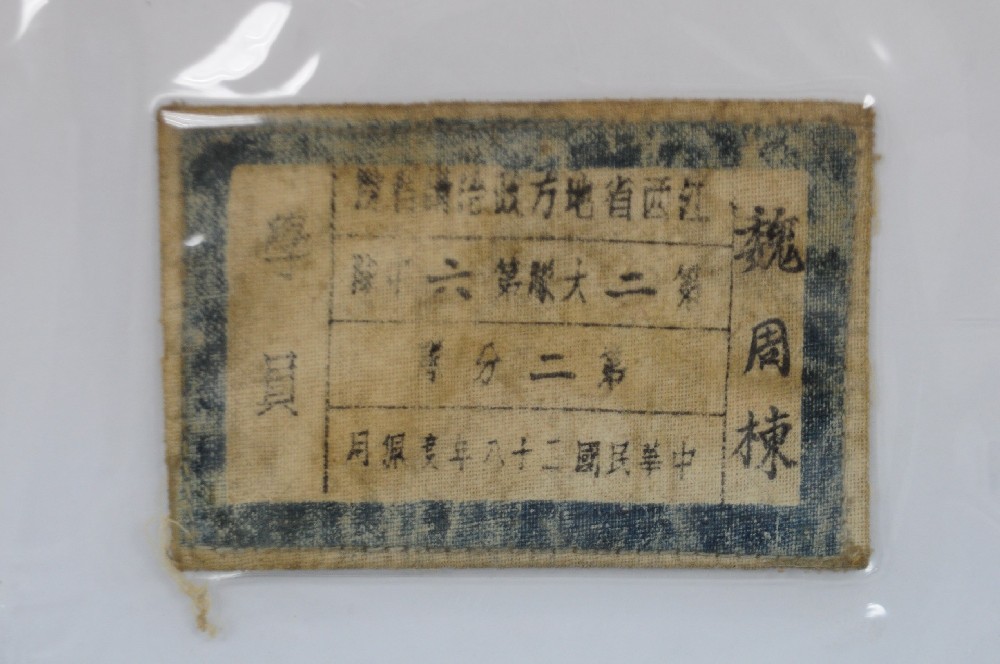 魏周棟
江西省地方政治講習院
第二大隊第六中隊
第二分隊
中華民國二十八年度佩用
學員